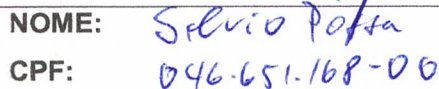 NOME: Silvio Possa
CPF: 046.651.168-00